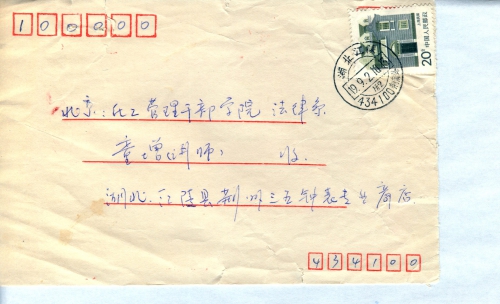 100000
20分
中国人民邮政
北京：化工管理干部学院 法律系
童增（讲师） 收
434100
湖北.江陵县荆州三五钟表专卖商店
434100